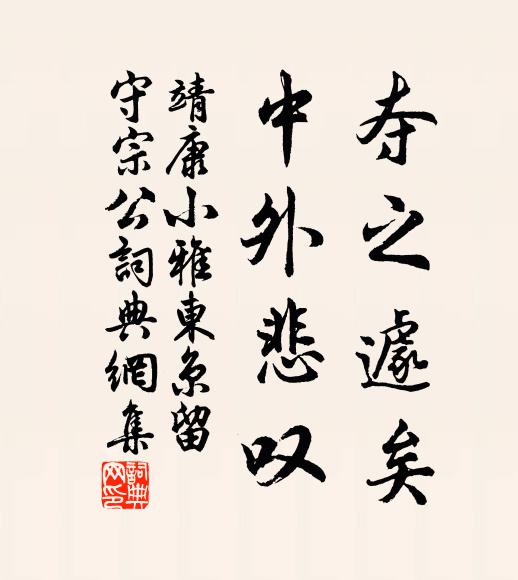 夺之遽矣
中外悲叹
靖康小雅東京留
守宗公詞典網集
詞典
网印